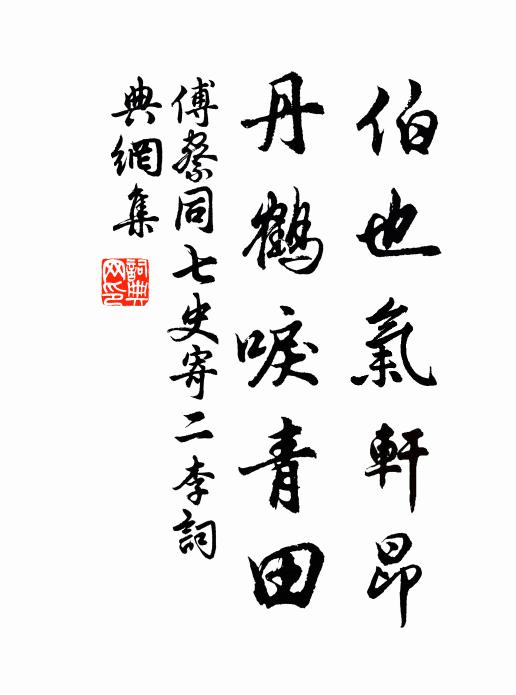 伯也氣軒昂
丹鶴唳青田
傅察同七史寄二李詞
典網集
詞典
网印